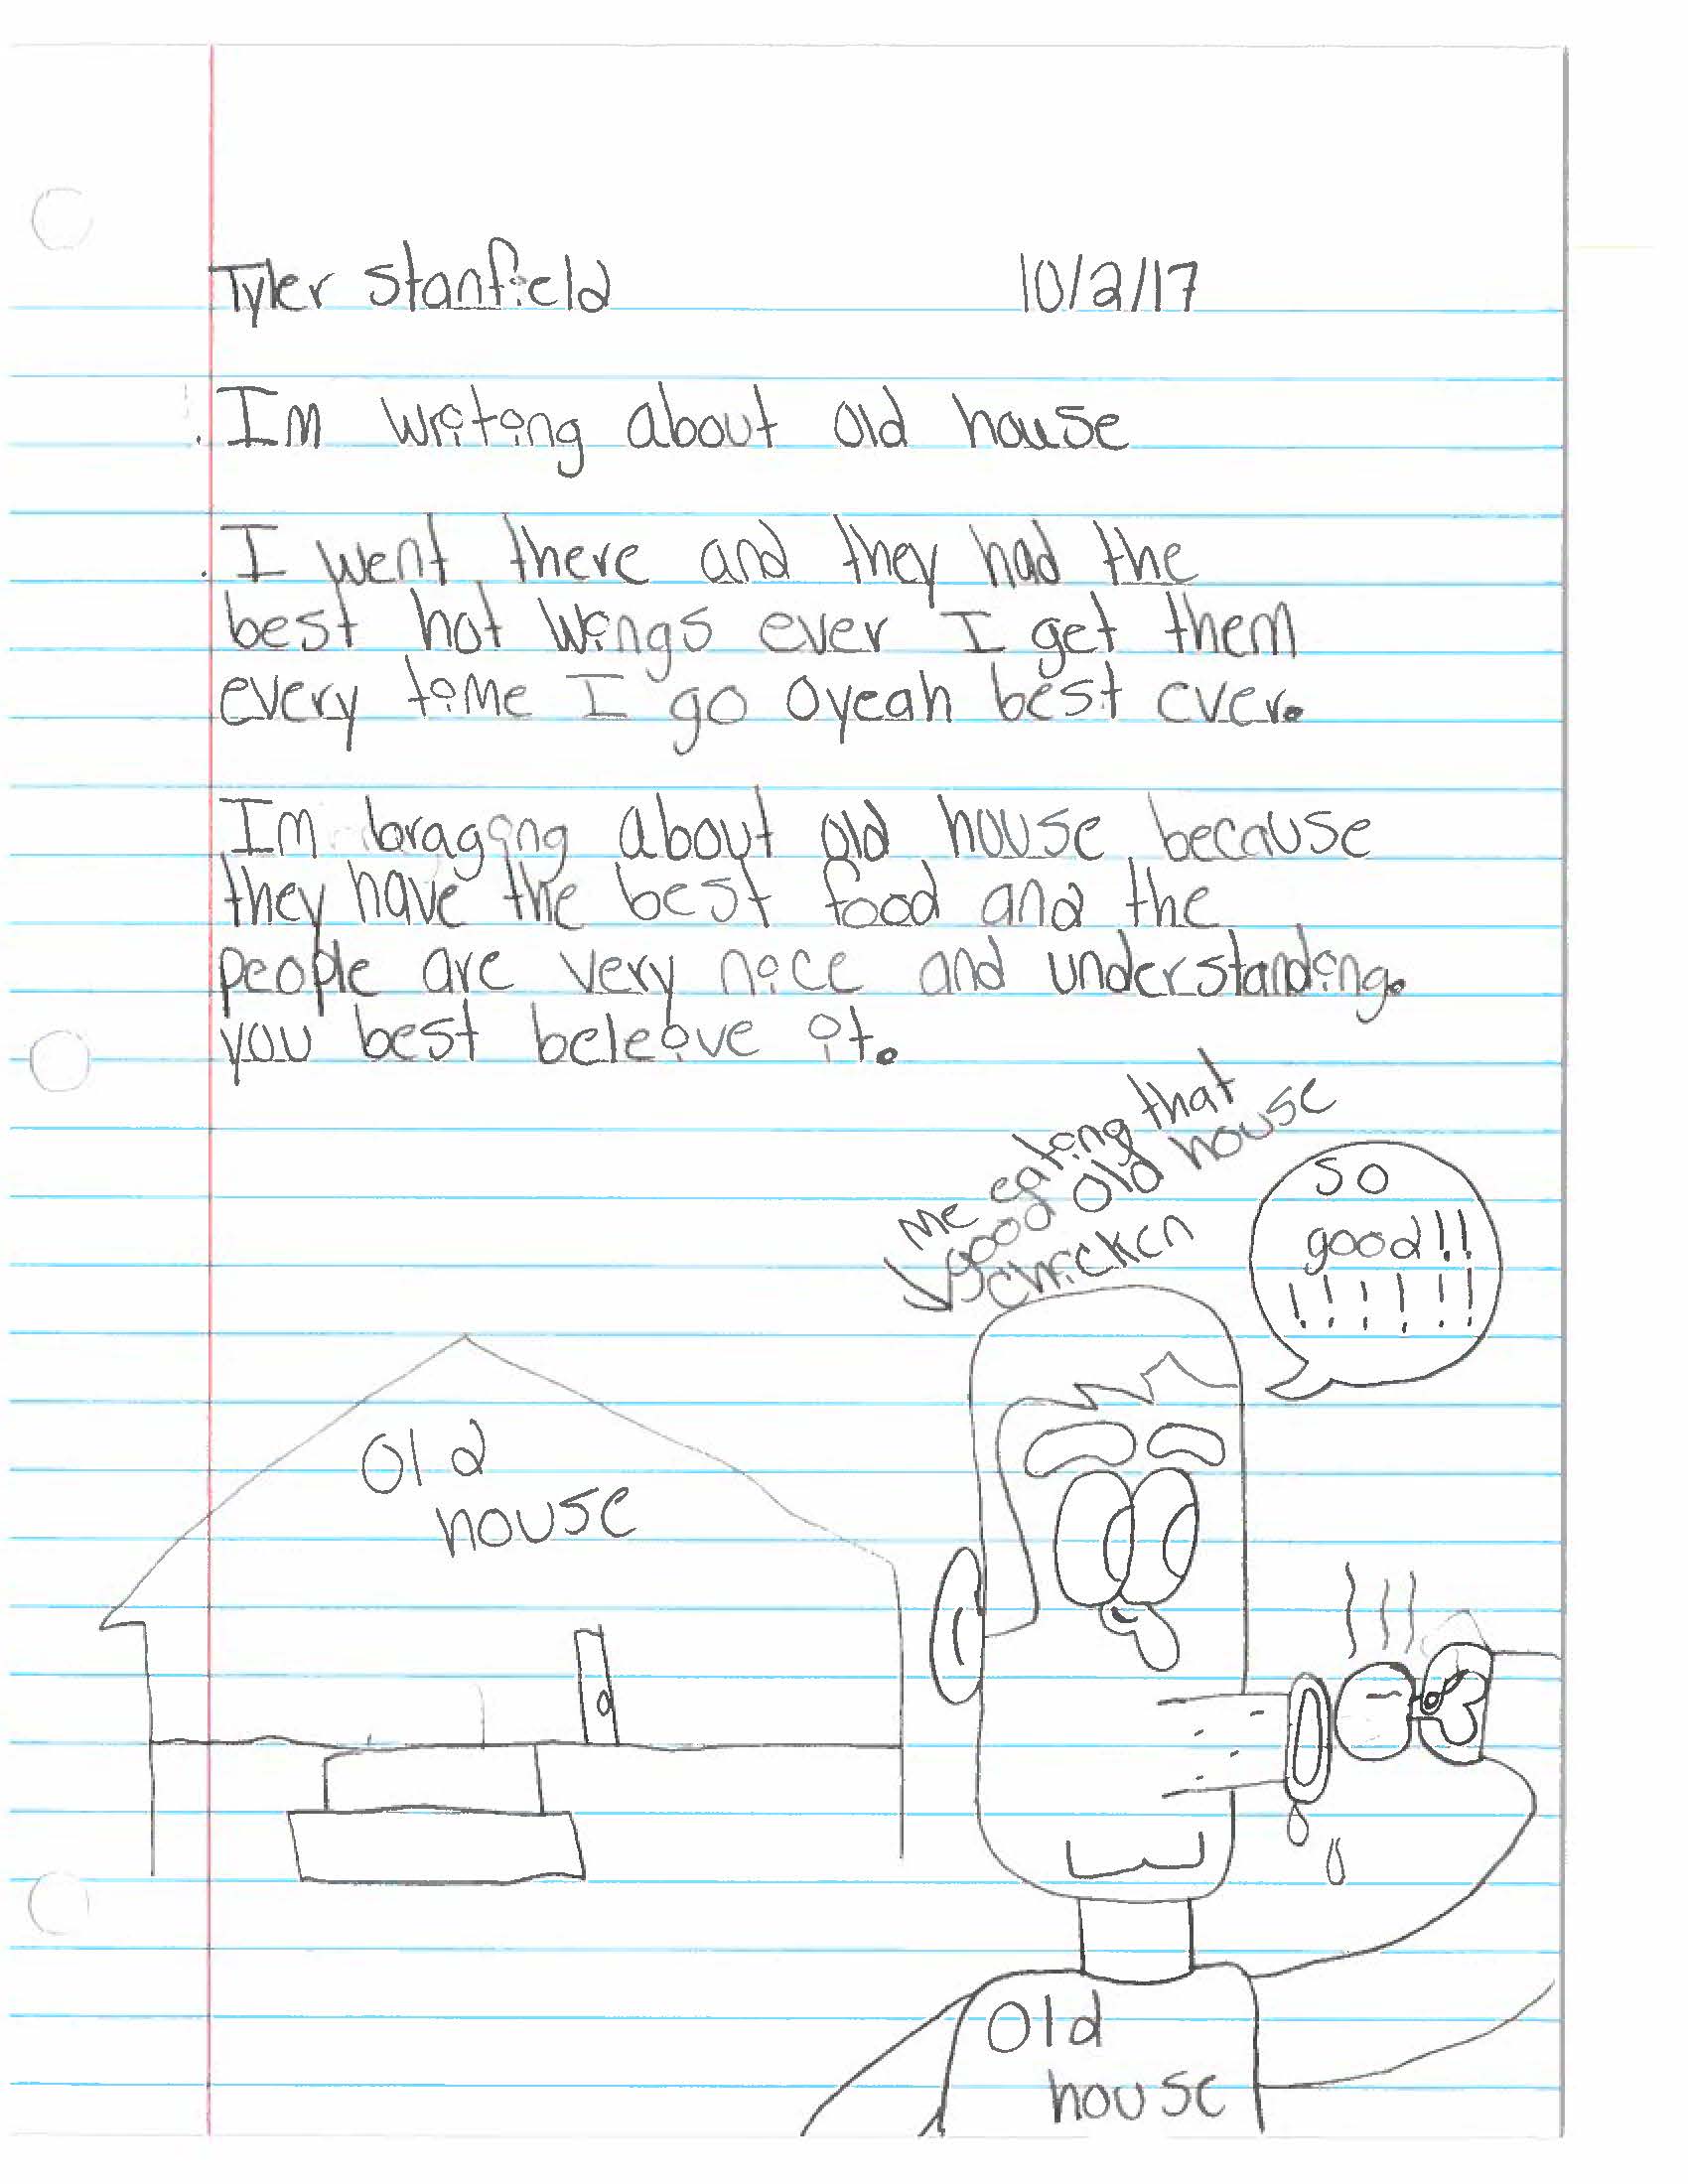 Tyler Stanfield 10/2/17
Im writing about old house
I went there and they had the
best hot wings ever I get them
every time I go oyeah best ever.
Im braging about old house because
they have the best food and the
people are very nice and understanding.
you best beleive it.
Me eating that
good old house
chicken
so
good!!
!!!!!!
Old
house
Old
house